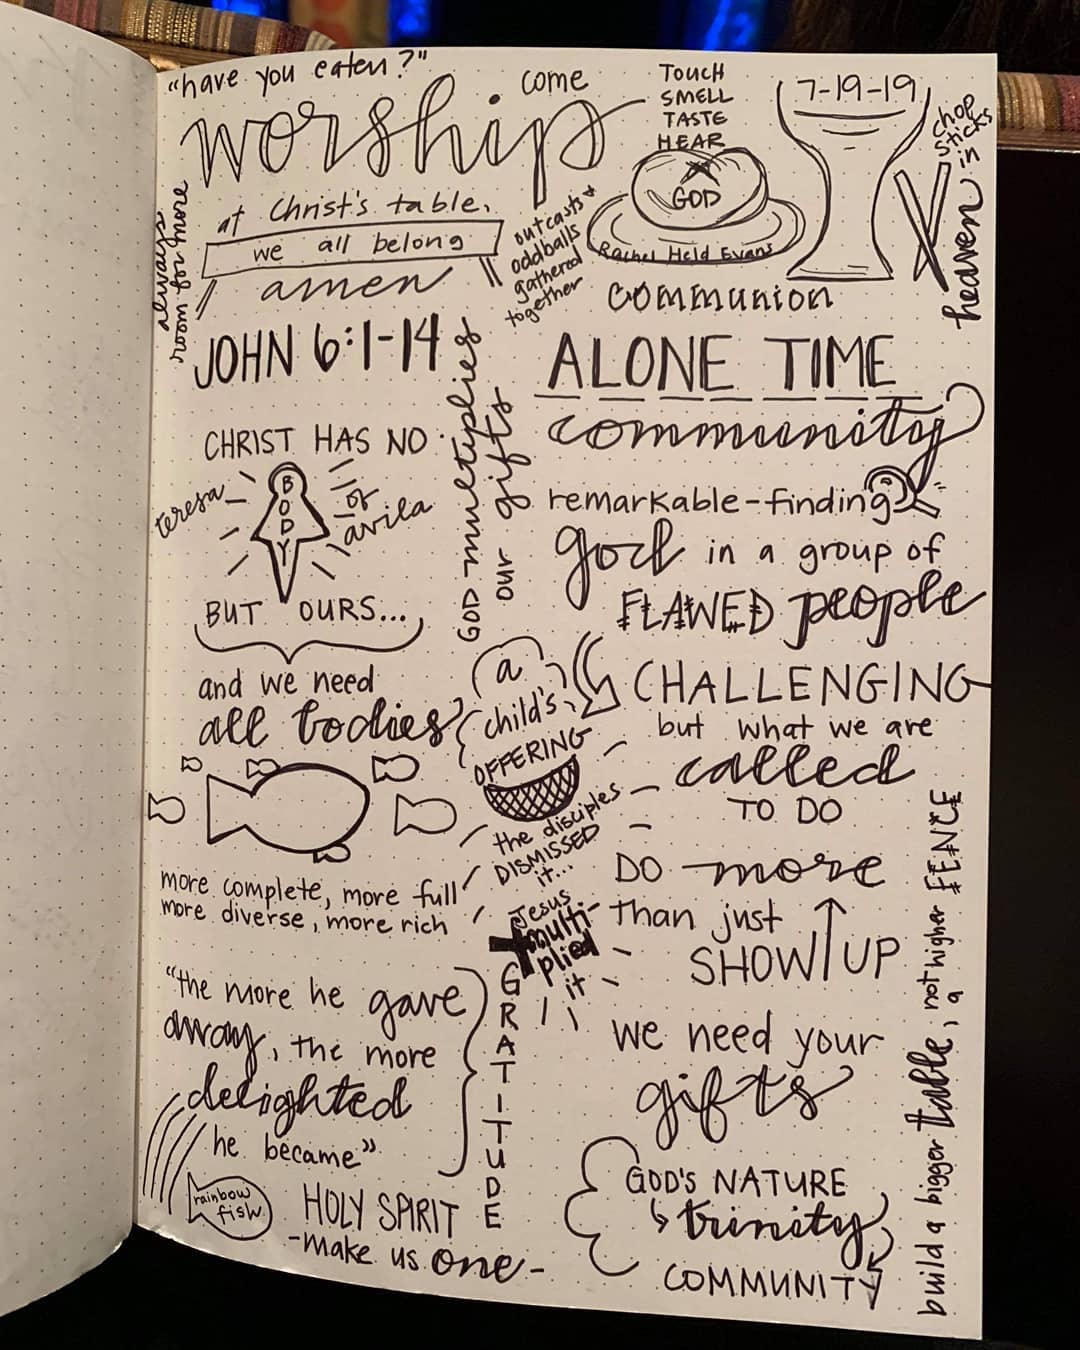 "have you eaten?"
come
worship
at Christ's table.
we all belong
amen
always
room for more
outcasts +
oddballs
gathered
together
TOUCH
SMELL
TASTE
HEAR
GOD
Rachel Held Evans
communion
7-19-19
chop
sticks
in
heaven
JOHN 6:1-14
GOD multiplies
our gifts
CHRIST HAS NO
teresa
BODY
of
avila
BUT YOURS...
and we need
all bodies
more complete, more full
more diverse, more rich
"the more he gave
away, the more
delighted
he became"
rainbow
fish
HOLY SPIRIT
-make us one-
a
child's
OFFERING
the disciples
DISMISSED
it...
Jesus
multi-
plied
it
GRATITUDE
ALONE TIME
community
remarkable-finding
god in a group of
FLAWED people
CHALLENGING
but what we are
called
TO DO
DO more
than just
SHOW UP
we need your
gifts
GOD'S NATURE
trinity
COMMUNITY
build a bigger table, not a higher FENCE